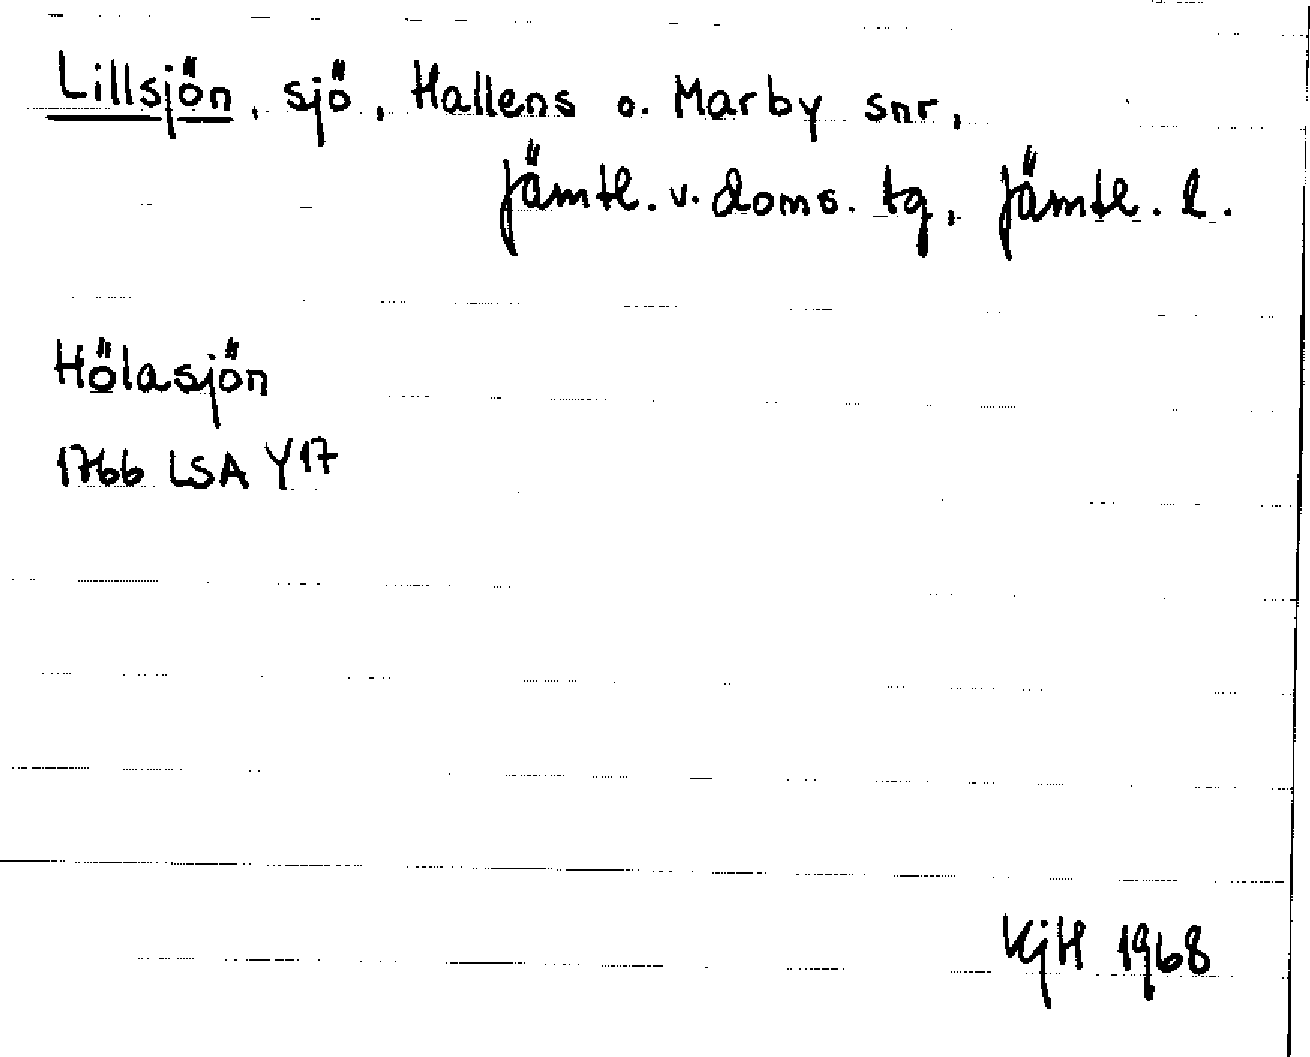 Lillsjön, sjö, Hallens o. Marby snr,
Jämtl. v. doms. tg, Jämtl. l.
Hölasjön
1766 LSA Y17
KjH 1968